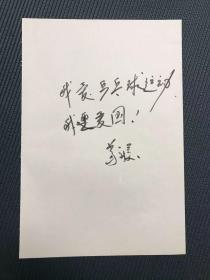 我爱乒乓球运动
我更爱国！